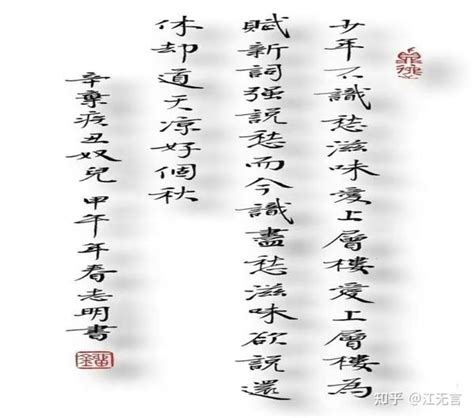 少年不識愁滋味愛上層樓愛上層樓為
賦新詞强說愁而今識盡愁滋味欲說還
休却道天凉好個秋
辛棄疾丑奴兒 甲午年春志明書
知乎 @江无言